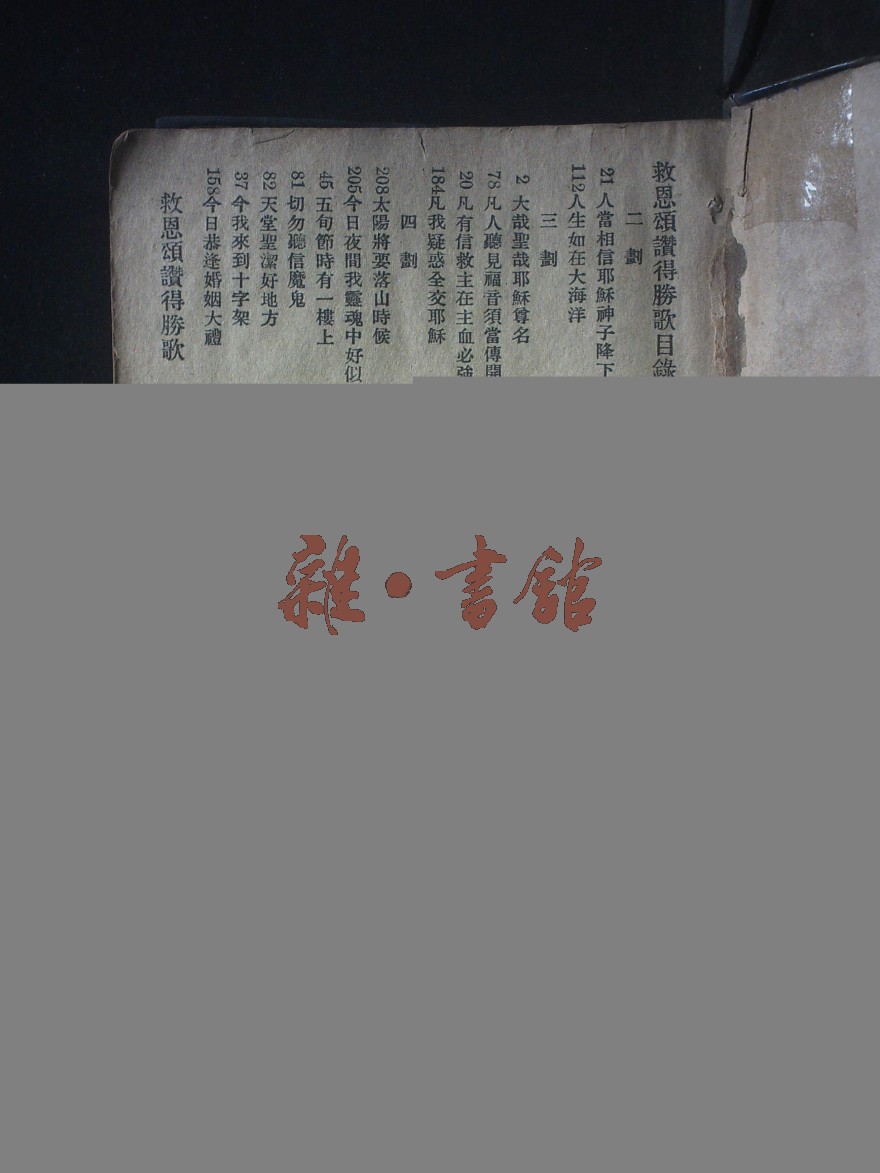 救恩頌讚得勝歌目錄
二劃
21 人當相信耶穌神子降下
112 人生如在大海洋
三劃
2 大哉聖哉耶穌尊名
78 凡人聽見福音須當傳開
20 凡有信救主在主血必強
184 凡我疑惑全交耶穌
四劃
208 太陽將要落山時候
205 今日夜間我靈魂中好似
45 五旬節時有一樓上
81 切勿聽信魔鬼
82 天堂聖潔好地方
37 今我來到十字架
158 今日恭逢婚姻大禮
救恩頌讚得勝歌
雜·書館